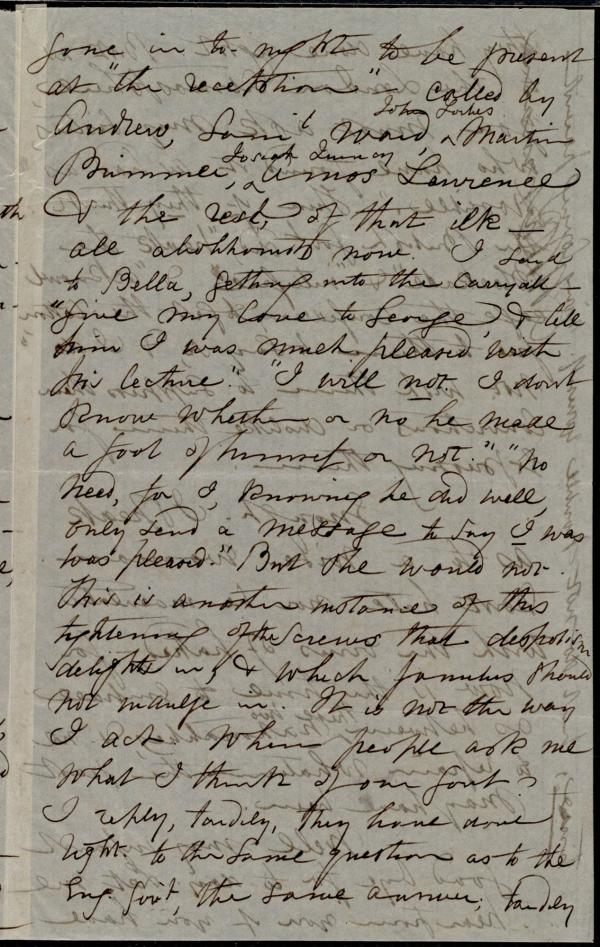 gone in to-night to be present
at "the reception" - called by
John Forbes
Andrew, Sam'l Ward, ^ Martin
Josiah Quincy
Brimmer, ^ Amos Lawrence
& the rest, of that ilk —
all abolitionists now. I said
to Bella, getting into the carryall —
"Give my love to George, & tell
him I was much pleased with
his lecture." "I will not. I don't
know whether or no he made
a fool of himself or not." "No
need, for I, knowing he did well,
only send a message to say I was
was pleased." But she would not.
This is another instance of this
tightening of the screws that despotism
delights in, & which families should
not indulge in. It is not the way
I act. When people ask me
what I think of our Gov't?
I reply, tardily, they have done
right. to the same question as to the
Eng. Gov't, the same answer; tardily